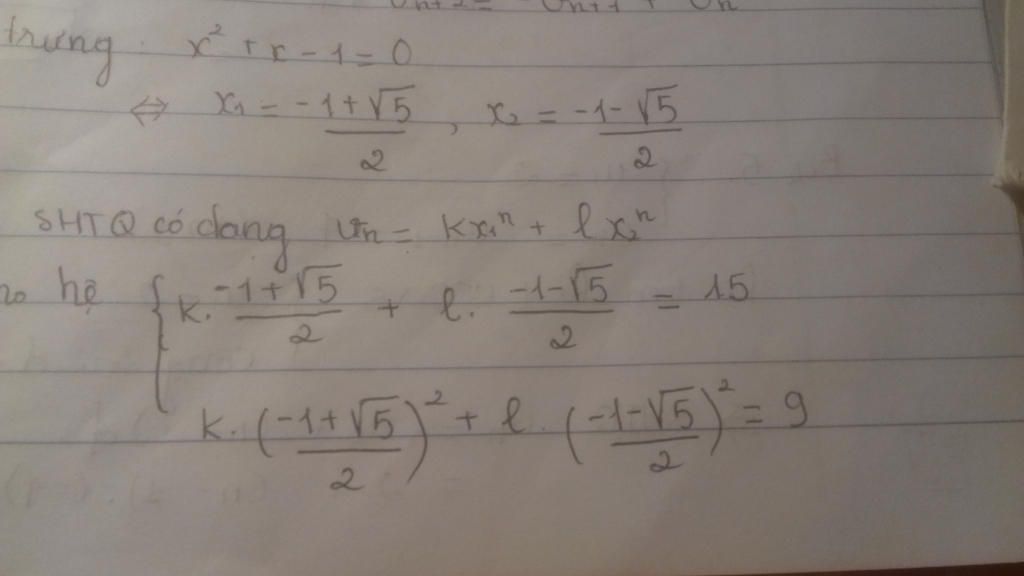 trưng x² + x - 1 = 0
⇔ x₁ = (-1+√5)/2 , x₂ = (-1-√5)/2
SHTQ có dạng vₙ = kx₁ⁿ + lx₂ⁿ
hệ { k. (-1+√5)/2 + l. (-1-√5)/2 = 15
k. ((-1+√5)/2)² + l. ((-1-√5)/2)² = 9